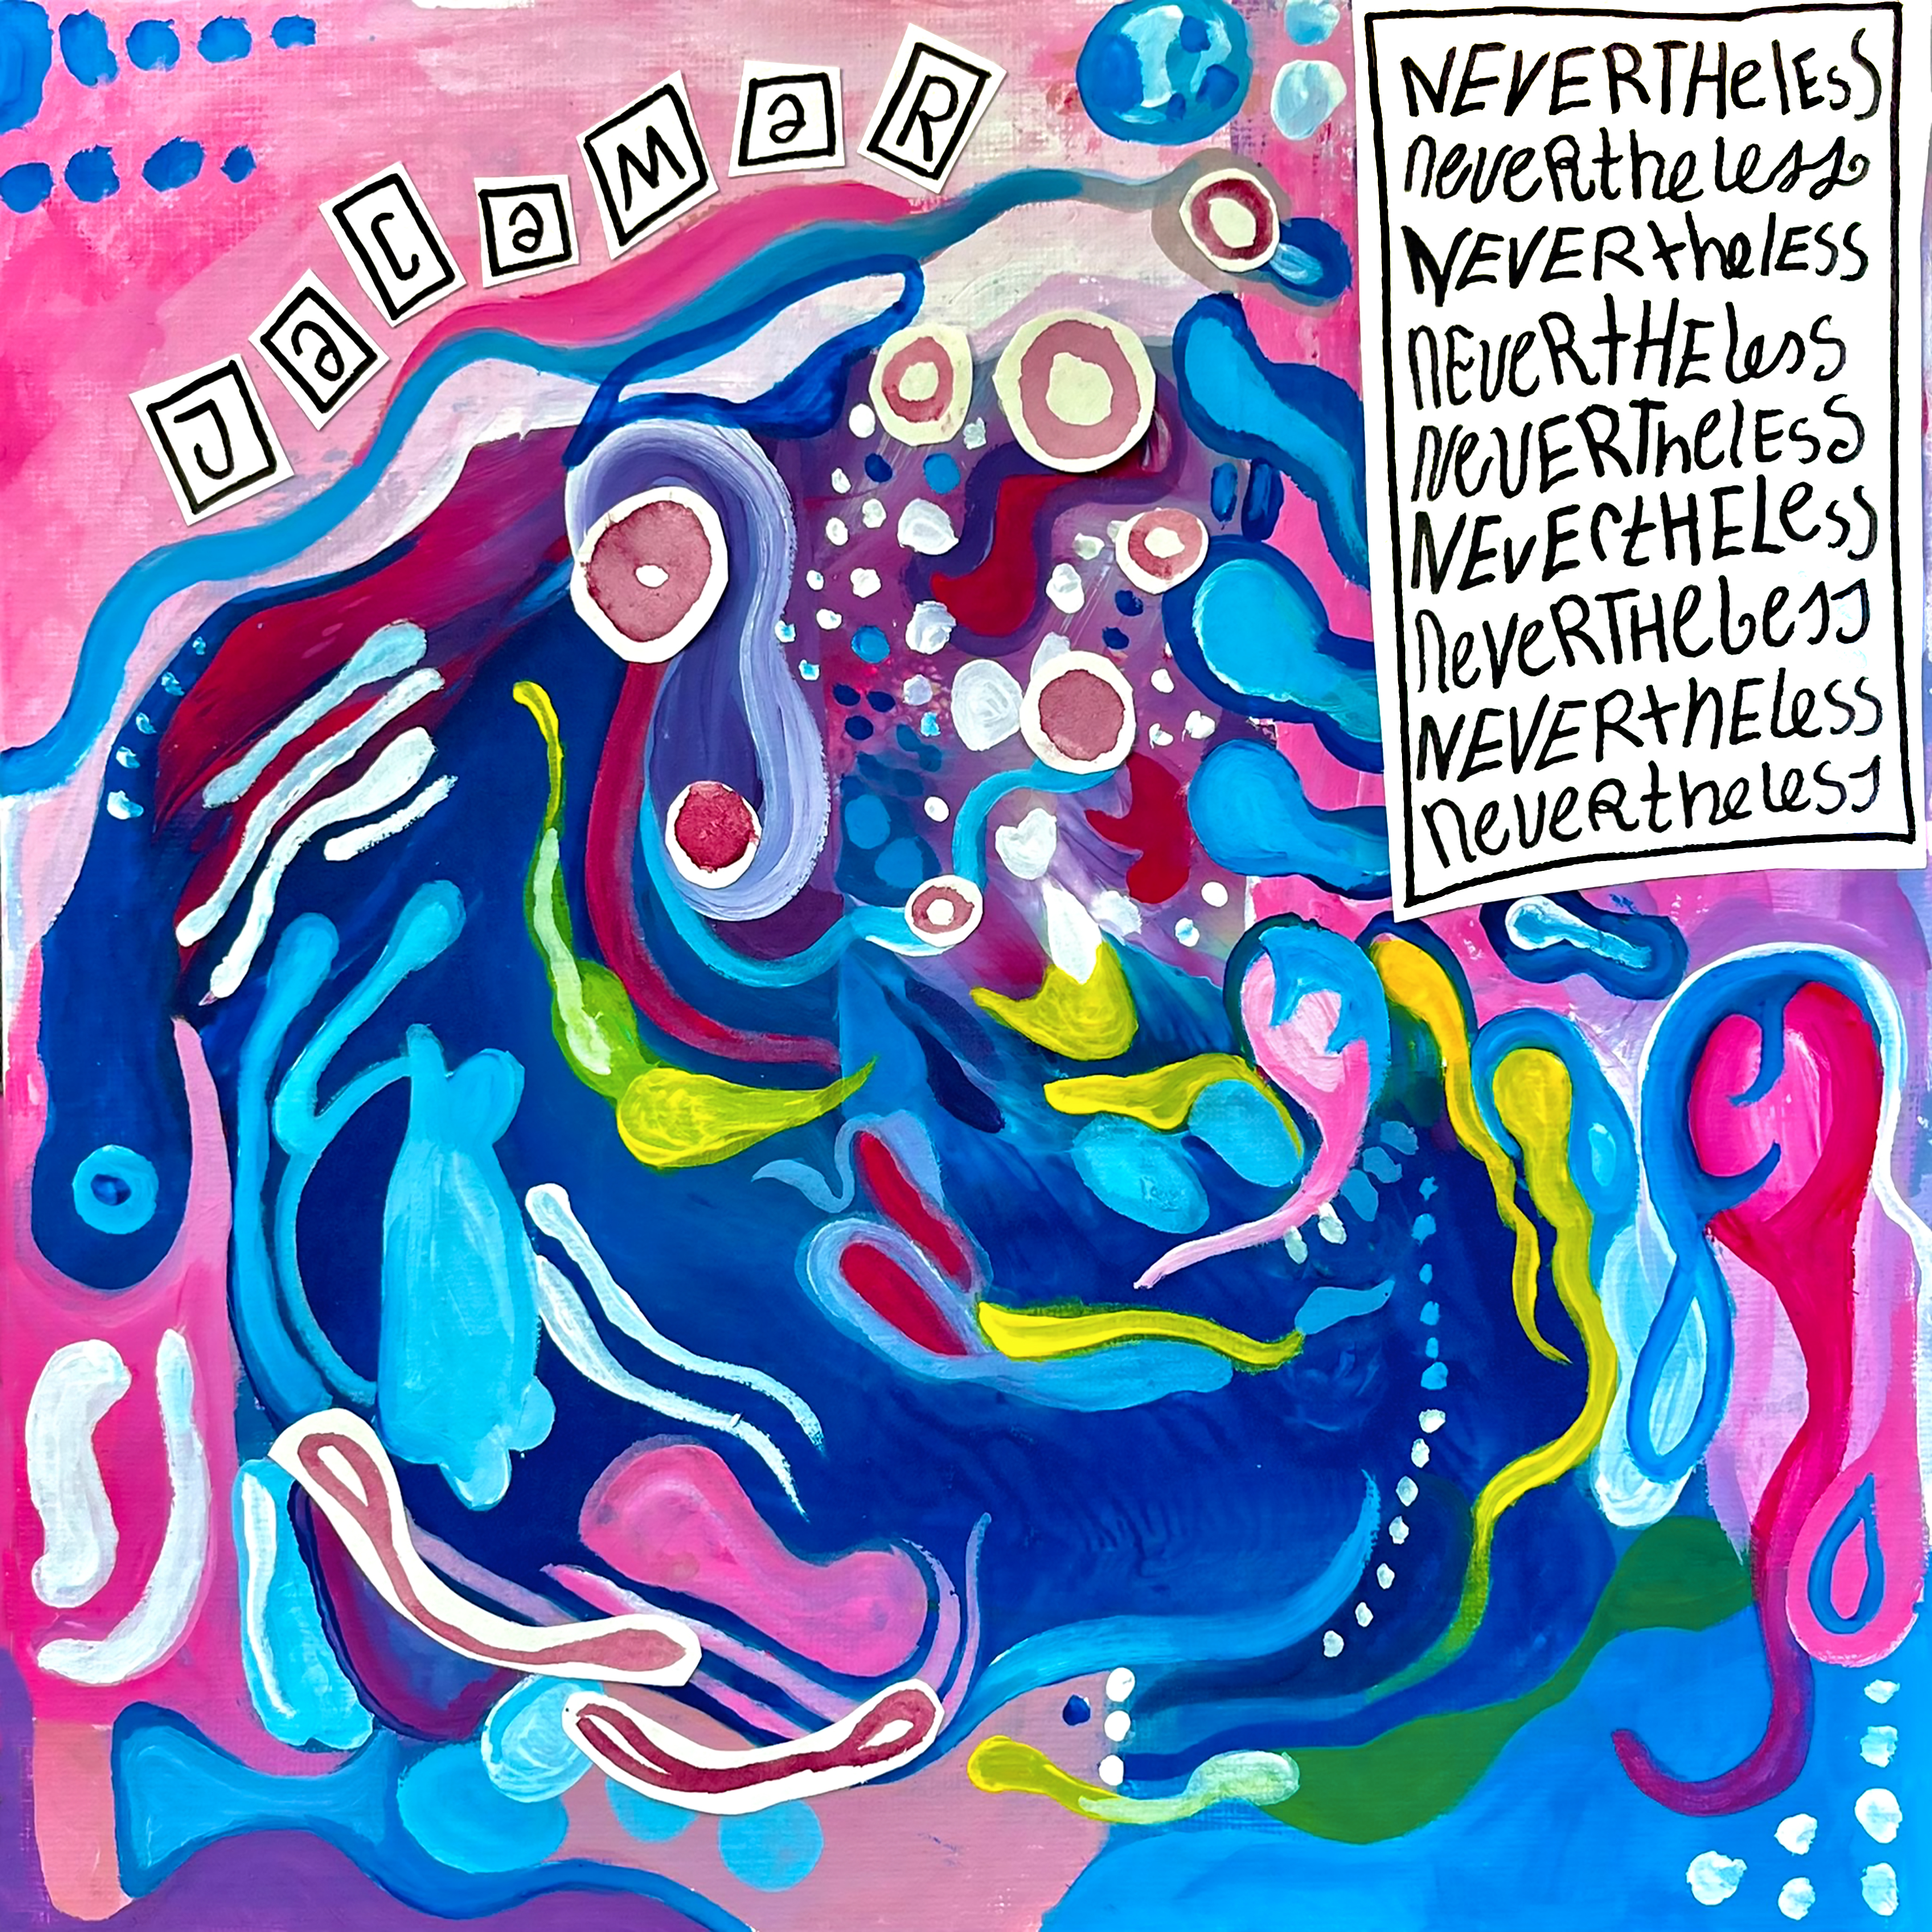 JaCaMaR
NEVERTHelESS
neveRtheless
NEVERthelESS
nEveRtHEless
NeVERThelESS
NEvErtHELeSS
neVeRTHeLess
NEVERthEless
neveRtheless